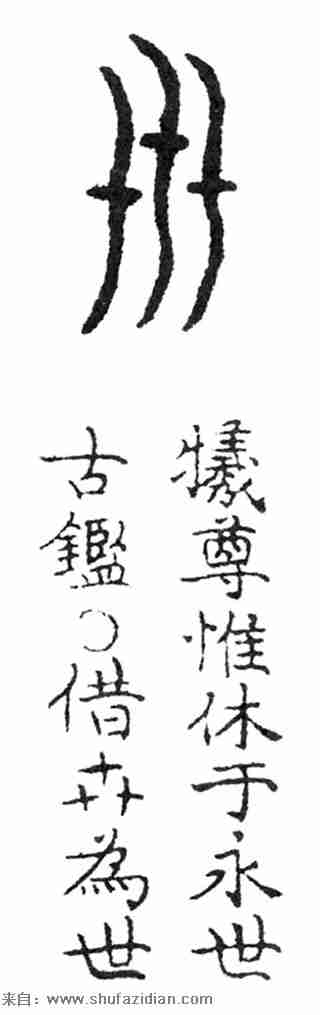 犧尊惟休于永世
古鑑○借卉為世
来自：www.shufazidian.com